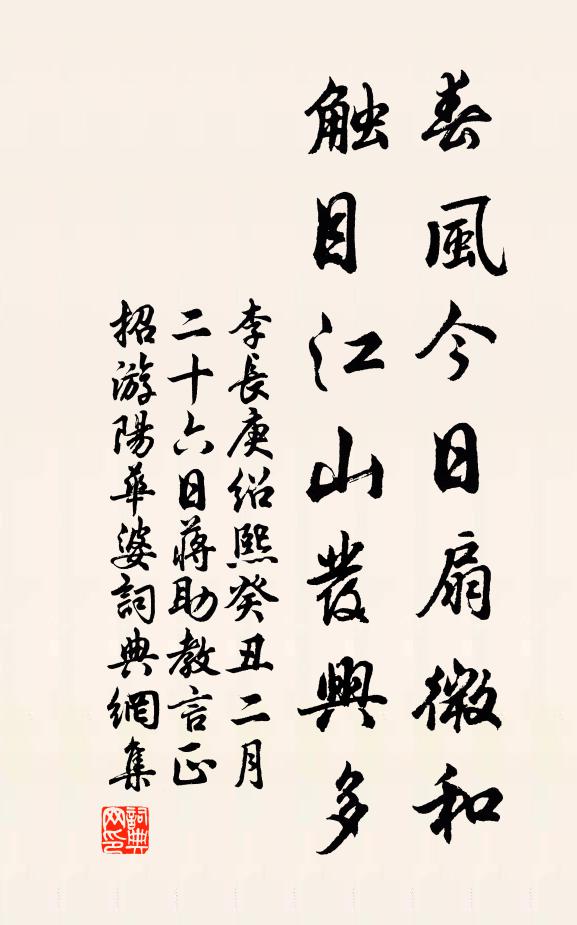 春風今日扇微和
触目江山發興多
李長庚紹熙癸丑二月
二十六日蔣助教言正
招游陽華婆詞典網集
詞典网印